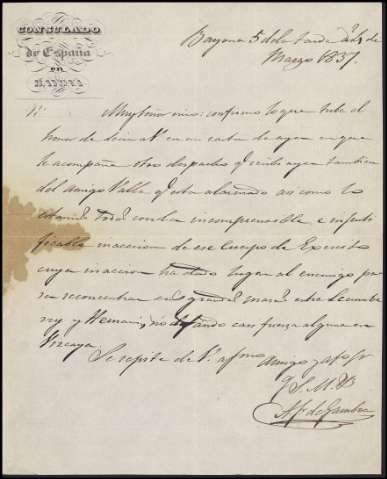 CONSULADO
de España
EN
BAYONA
Bayona 5 de la tarde de
Marzo 1837.
Muy Señor mio: confirmo lo que tube el
honor de decir a V. en mi carta de ayer en que
le acompañe otro despacho q. recibi ayer tambien
del amigo Valle q. esta alarmado asi como lo
estamos todos con la incomprensible, e injusti
ficable inaccion de ese Cuerpo de Exercito
cuya inaccion ha dado lugar al enemigo pa
ra reconcentrar sus grandes masas entre Lecumber
rey y Hernani, no dejando casi fuerza alguna en
Vizcaya
Se repite de V. afmo. Amigo y
Q. S. M. B.
de Gamboa